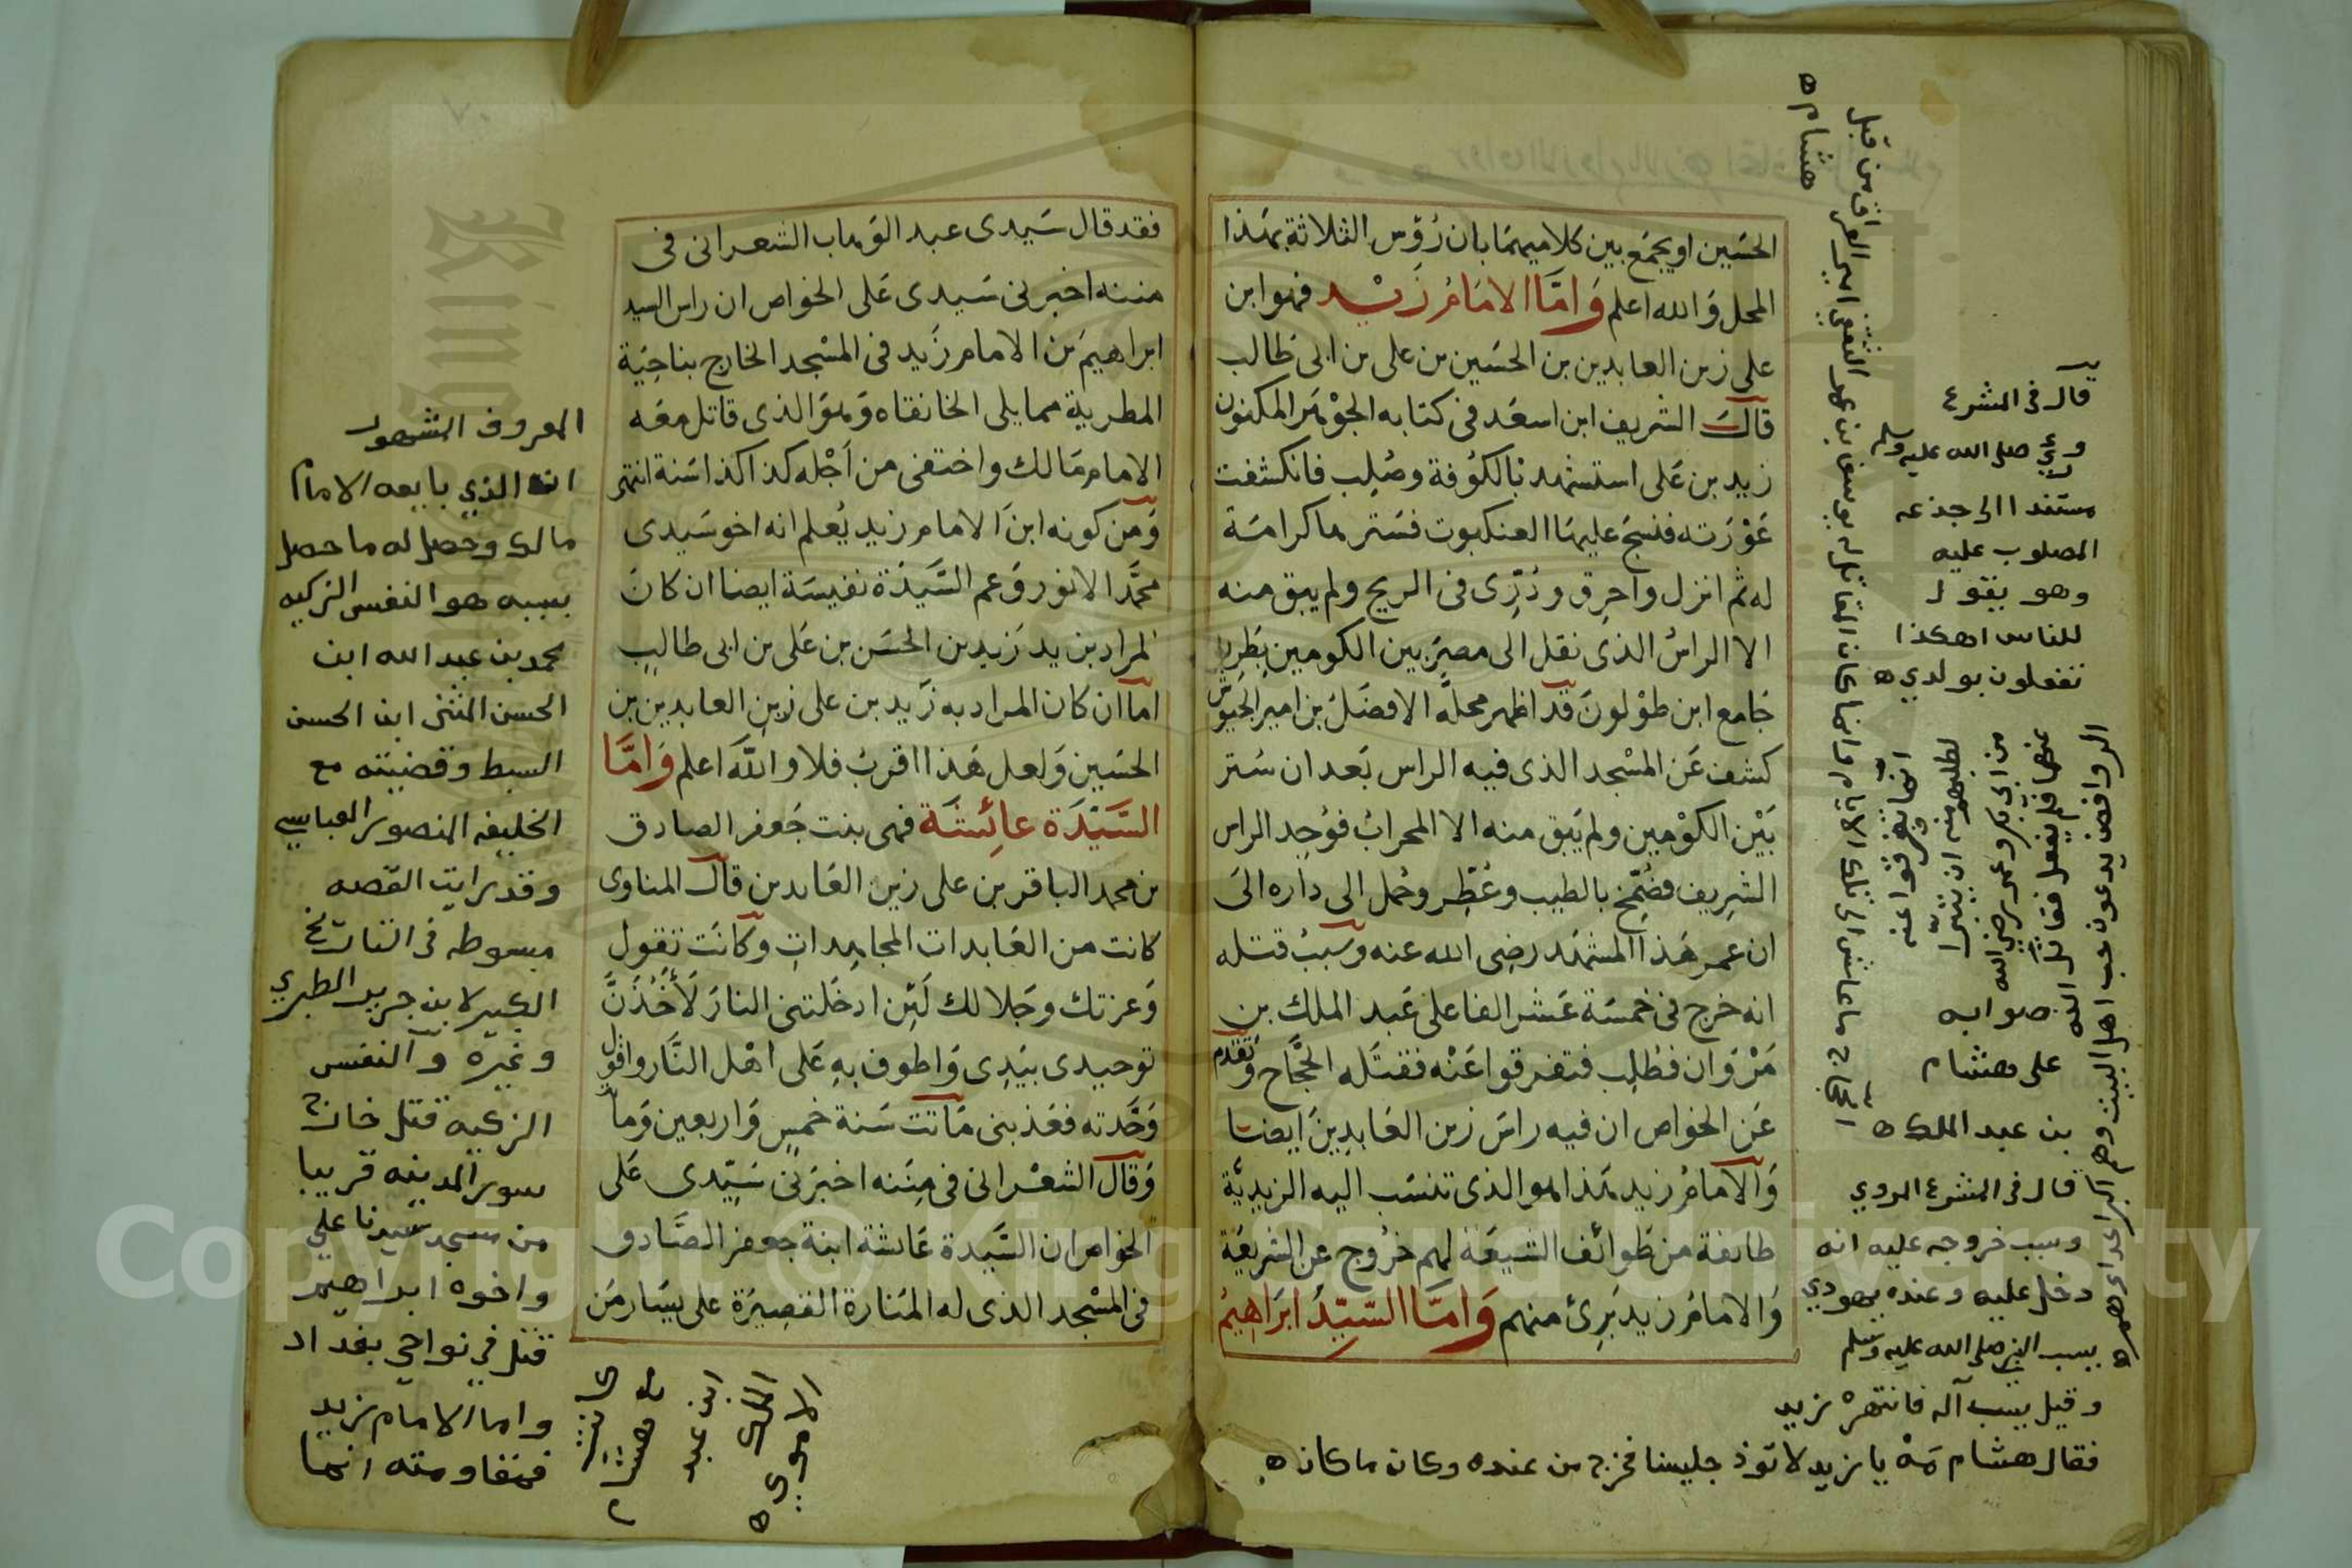 الحسَين او يجمَع بين كلاميهمَا بان رُؤس الثلاثة بهَذا
المحل وَالله اعلم وَامَّا الامَامُ زَيْد فهو ابن
على زين العابدين بن الحسَين بن على بن ابى طَالب
قالَ الشريف ابن اسعَد فى كتابه الجوْهَر المكنون
زيد بن عَلى استشهد بالكوُفة وصُلِب فانكشفت
عَوْرَته فنسَجَ عليهَا العنكبوت فسَترها كرامَة
له ثم انزل واحرِق وذُرِّى فى الريح ولم يبق منه
الا الراسُ الذى نقل الى مصرَ بين الكومين بِطَرِيق
جَامع ابن طوْلونَ قد اظهر محلَّه الافضَلُ بن امير الجيُوش
كشف عَن المسْجد الذى فيه الراس بَعد ان سُتر
بَيْن الكوْمين ولم يَبق منه الا المحرابُ فوُجِد الراس
الشرِيف فضُمِّخ بالطيب وعُطِّر وحُمل الى دَاره الىَ
ان عمر هَذا المشهَد رضِى الله عنه وسَببُ قتله
انه خرج فى خمسَة عَشر الفا على عَبد الملك بن
مَرْوَان فطُلِب فتفرقوا عَنْه فقتَله الحجَّاج وَتقدم
عَن الخواص ان فيه راسَ زين العَابدِينَ ايضا
وَالامَامُ زيد هَذا هو الذى تنسَب اليه الزيديَّة
طايفة من طَوائف الشيعَة لهم خرُوج عن الشريعَة
وَالامَامُ زيد بَرِئ منهم وَامَّا السّيّدُ ابرَاهِيمُ
قال فى المشرع
ورُئي صلى الله عليه وسلم
مستندا الى جذعه
المصلوب عليه
وهو يقول
للناس اهكذا
تفعلون بولدي ه
صوابه
على هشام
بن عبد الملك ه
قال فى المشرع الروي
وسبب خروجه عليه انه
دخل عليه وعنده يهودي
يسب النبي صلى الله عليه وسلم
وقيل يسب آله فانتهره زيد
فقال هشام مَهْ يا زيد لا تؤذ جليسنا فخرج من عنده وكان ما كان ه
انما تفرقوا عنه
لطلبهم منه ان يتبرّا
من ابى بكر وعمر رضي الله
عنهما فلم يفعل
الروافض يدعون حب اهل البيت وهم اكبر اعداءهم ه
هشام ه
فقد قال سَيدى عبد الوَهاب الشعرانى فى
مننه اخبرنى سَيدى عَلى الخواص ان راس السيد
ابراهيمَ بن الامام زَيد فى المسْجد الخارج بناحِيَة
المطرية مما يلى الخانقاه وَهوَ الذى قاتل معَه
الامام مَالك واختفى من اَجْله كذا كذا سَنة انتهى
وَمن كونه ابنَ الامام زيد يُعلم انه اخو سَيدى
محمَّد الانور وَعم السَّيدَة نفيسَة ايضا ان كانَ
المراد بزيد زَيد بن الحسَن بن عَلى بن ابى طالبٍ
امَا ان كان المراد به زَيد بن على زين العابدين بن
الحسَين وَلعل هَذا اقربُ فلا وَاللَّه اعلم وَامَّا
السَّيّدَة عائِشَة فهى بنت جَعفر الصادق
بن محمد الباقر بن على زين العَابدين قالَ المناوى
كانت من العَابدات المجاهِداتِ وكانَت تقول
وَعزتك وجَلالك لَئِن ادخَلتنى النارَ لَأَخُذَنَّ
توحيدى بيَدِى وَاطوف بِهِ عَلى اهْل النَّار واقول
وَحَّدته فعَذبنى مَاتت سَنة خمسٍ وَاربعين وَمائة
وَقالَ الشعْرانى فى مِنَنه اخبرَنى سَيّدى عَلى
الخواص ان السَّيدة عَائشة ابنة جعفر الصَّادق
فى المسْجد الذى له المنَارة القصِيرَة على يسَار مَن
المعروف المشهور
انه الذي بايعه الامام
مالك وحصل له ما حصل
بسببه هو النفس الزكيه
محمد بن عبد الله ابن
الحسن المثنى ابن الحسن
السبط وقضيته مع
الخليفه المنصور العباسي
وقد رايت القصه
مبسوطه فى التاريخ
الكبير لابن جرير الطبري
وغيره والنفس
الزكيه قتل خارج
سور المدينه قريبا
من مسجد سيدنا علي
واخوه ابراهيم
قتل في نواحي بغداد
واما الامام زيد
فمقاومته انما
هشام
ابن عبد
الملك
الاموي ه
Copyright © King Saud University